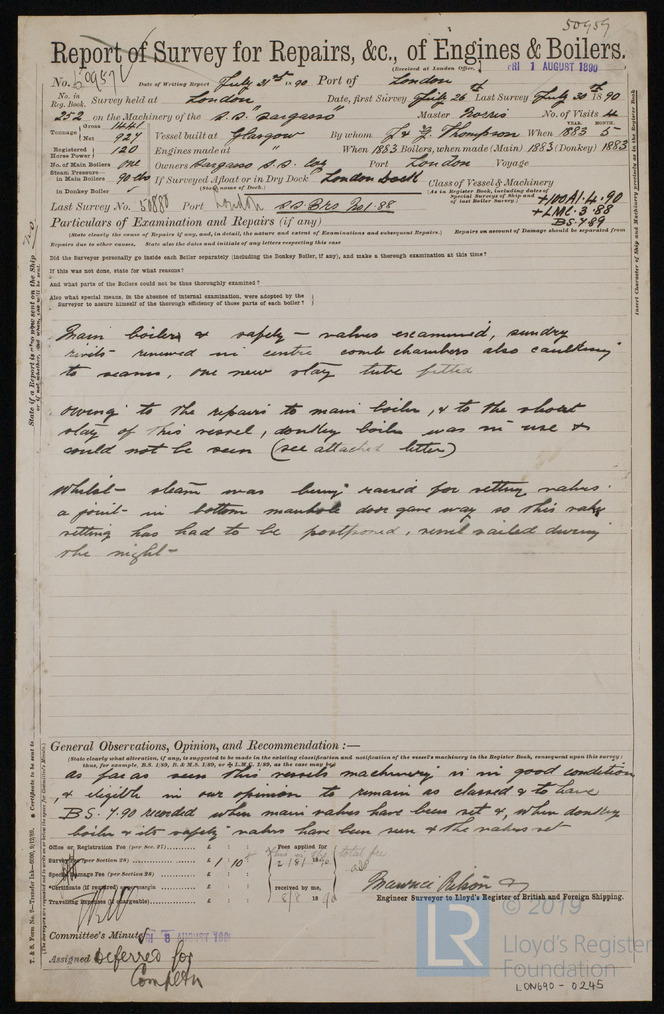 50959
Report of Survey for Repairs, &c., of Engines & Boilers.
(Received at London Office, FRI 1 AUGUST 1890)
No. 50959 Date of Writing Report July 31st 1890 Port of London
No. in Reg. Book. 252 Survey held at London Date, first Survey July 26th Last Survey July 30th 1890
on the Machinery of the S.S. "Sargasso" Master Norris No. of Visits 4
Tonnage Gross 1441 Net 927 Vessel built at Glasgow By whom J & G. Thompson When 1883 YEAR. MONTH. 5
Registered Horse Power 120 Engines made at " When 1883 Boilers, when made (Main) 1883 (Donkey) 1883
No. of Main Boilers one Owners Sargasso S.S. Coy Port London Voyage
Steam Pressure in Main Boilers 90 lbs If Surveyed Afloat or in Dry Dock London Dock
(State name of Dock.)
in Donkey Boiler
Class of Vessel & Machinery
(As in Register Book, including dates of Special Surveys of Ship and of last Boiler Survey.)
+100A1.4.90
+LMC.3.88
BS.7.89
Last Survey No. 50888 Port London S.S. B'ro No1.88
Particulars of Examination and Repairs (if any)
(State clearly the cause of Repairs if any, and, in detail, the nature and extent of Examinations and subsequent Repairs.) Repairs on account of Damage should be separated from
Repairs due to other causes. State also the dates and initials of any letters respecting this case
Did the Surveyor personally go inside each Boiler separately (including the Donkey Boiler, if any), and make a thorough examination at this time?
If this was not done, state for what reasons?
And what parts of the Boilers could not be thus thoroughly examined?
Also what special means, in the absence of internal examination, were adopted by the
Surveyor to assure himself of the thorough efficiency of those parts of each boiler?
Main boiler & safety-valves examined, sundry
rivets renewed in centre comb chambers also caulking
to seams, one new stay tube fitted
Owing to the repairs to main boiler, & to the short
stay of this vessel, donkey boiler was in use &
could not be seen (see attached letter)
Whilst steam was being raised for setting valves
a joint in bottom manhole door gave way so this valve
setting has had to be postponed, vessel sailed during
the night
General Observations, Opinion, and Recommendation:—
(State clearly what alteration, if any, is suggested to be made in the existing classification and notification of the vessel's machinery in the Register Book, consequent upon this survey:
thus, for example, B.S. 1/89, B. & M.S. 1/89, or L.M.C. 1/89, as the case may be)
As far as seen this vessels machinery is in good condition
& eligible in our opinion to remain as classed & to have
BS. 7.90 recorded when main valves have been set &, when donkey
boiler & its safety valves have been seen & the valves set
Office or Registration Fee (per Sec. 27) £ : :
Survey Fee (per Section 28) £ 1 : 10 :
Special Damage Fee (per Section 28) £ : :
Certificate (if required) margin £ : :
Travelling Expenses (if chargeable) £ : :
Fees applied for
2/8/1890
received by me,
8/8 1890
total fee
Engineer Surveyor to Lloyd's Register of British and Foreign Shipping.
Committee's Minute FRI 8 AUGUST 1890
Assigned Deferred for
Completn
© 2019
LR
Lloyd's Register
Foundation
LON690-0245
State if a Report is also sent on the Ship
Insert Character of Ship and Machinery precisely as in the Register Book